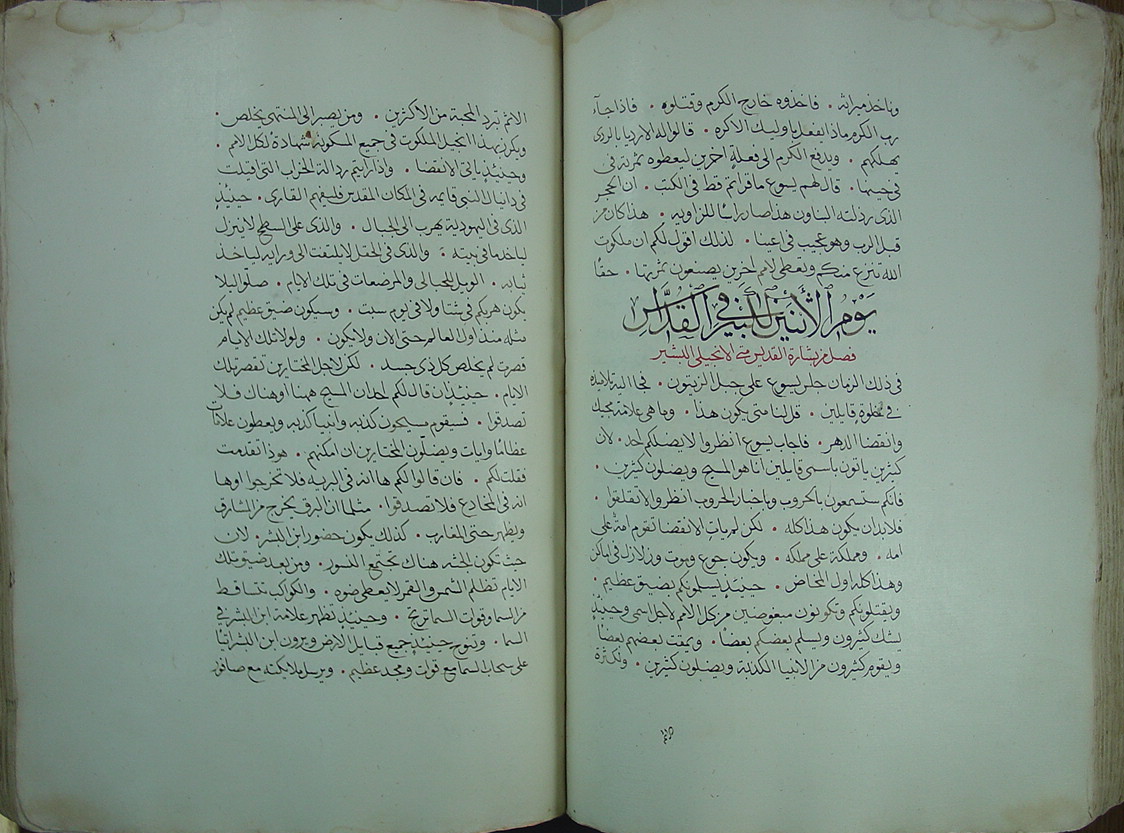 وناخذ ميراثه . فاخذوه خارج الكرم وقتلوه . فاذا جآء
رب الكرم ماذا يفعل باوليك الاكره . قالوا له الارديا بالردى
يهلكهم . ويدفع الكرم الى فعلة اخرين ليعطوه ثمرته في
في حينها . قال لهم يسوع ما قراتم قط في الكتب . ان الحجر
الذى رذلته البناون هذا صار راسًا للزاويه . هذا كان من
قبل الرب وهو عجيب في اعيننا . لذلك اقول لكم ان ملكوت
الله تنزع منكم وتعطى لامم اخرين يصنعون ثمرتها . حقا
يَوْمُ الأثنين الكبير في القدَّاس
فصل من بشارة القديس متى الانجيلى البشير
في ذلك الزمان جلس يسوع على جبل الزيتون . فجا اليه تلاميذه
في خلوة قايلين . قل لنا متى يكون هذا . وما هي علامة مجيك
وانقضا الدهر . فاجاب يسوع انظروا لا يضلكم احد . لان
كثيرين ياتون باسمى قايلين انا هو المسيح ويضلون كثيرين .
فانكم ستسمعون بالحروب وباخبار الحروب انظروا لا تقلقوا .
فلابد ان يكون هذا كله . لكن لم يات الانقضا تقوم امة على
امه . ومملكة على مملكه . ويكون جوع وموت وزلازل في اماكن
وهذا كله اول المخاض . حينيذٍ يسلمونكم بضيق عظيم .
ويقتلونكم وتكونون مبغوضين من كل الامم لاجل اسمى وحينيذٍ
يشك كثيرون ويسلم بعضكم بعضًا . ويمقت بعضهم بعضًا
ويقوم كثيرون من الانبيا الكذبة ويضلون كثيرين . ولكثرة
الاثم تبرد المحبة من الاكثرين . ومن يصبر الى المنتهى يخلص .
ويكرز بهذا انجيل الملكوت في جميع المسكونة شهادةً لكل الامم .
وحينيذٍ ياتى الانقضا . واذا رايتم رذالة الخراب التى قيلت
في دانيال النبى قايمه في المكان المقدس فليفهم القارى . حينيذٍ
الذى في اليهودية يهرب الى الجبال . والذى على السطح لا ينزل
لياخذ ما في بيته . والذى في الحقل لا يلتفت الى ورايه لياخذ
ثيابه . الويل للحبالى والمرضعات في تلك الايام . صلّوا ليلا
يكون هربكم في شتا ولا في يوم سبت . وسيكون ضيق عظيم لم يكن
مثله منذ اول العالم حتى الان ولا يكون . ولولا تلك الايام
قصرت لم يخلص كل ذى جسد . لكن لاجل المختارين تقصر تلك
الايام . حينيذٍ ان قال لكم احد ان المسيح ههنا او هناك فلا
تصدقوا . فسيقوم مسيحيون كذبه وانبيا كذبه ويعطون علامات
عظامًا وايات ويضلّون المختارين ان امكنهم . هوذا تقدمت
فقلت لكم . فان قالوا لكم ها انه في البريه فلا تخرجوا او ها
انه في المخادع فلا تصدقوا . مثلما ان البرق يخرج من المشارق
ويظهر حتى المغارب . كذلك يكون حضور ابن البشر . لان
حيث تكون الجثه هناك تجتمع النسور . ومن بعد ضيق تلك
الايام تظلم الشمس والقمر لا يعطى ضوه . والكواكب تتساقط
من السما وقوات السما ترتج . وحينيذٍ تظهر علامة ابن البشر في
السما . وتنوح حينيذٍ جميع قبايل الارض ويرون ابن البشر اتيًا
على سحاب السما مع قوات ومجد عظيم . ويرسل ملايكته مع صافور